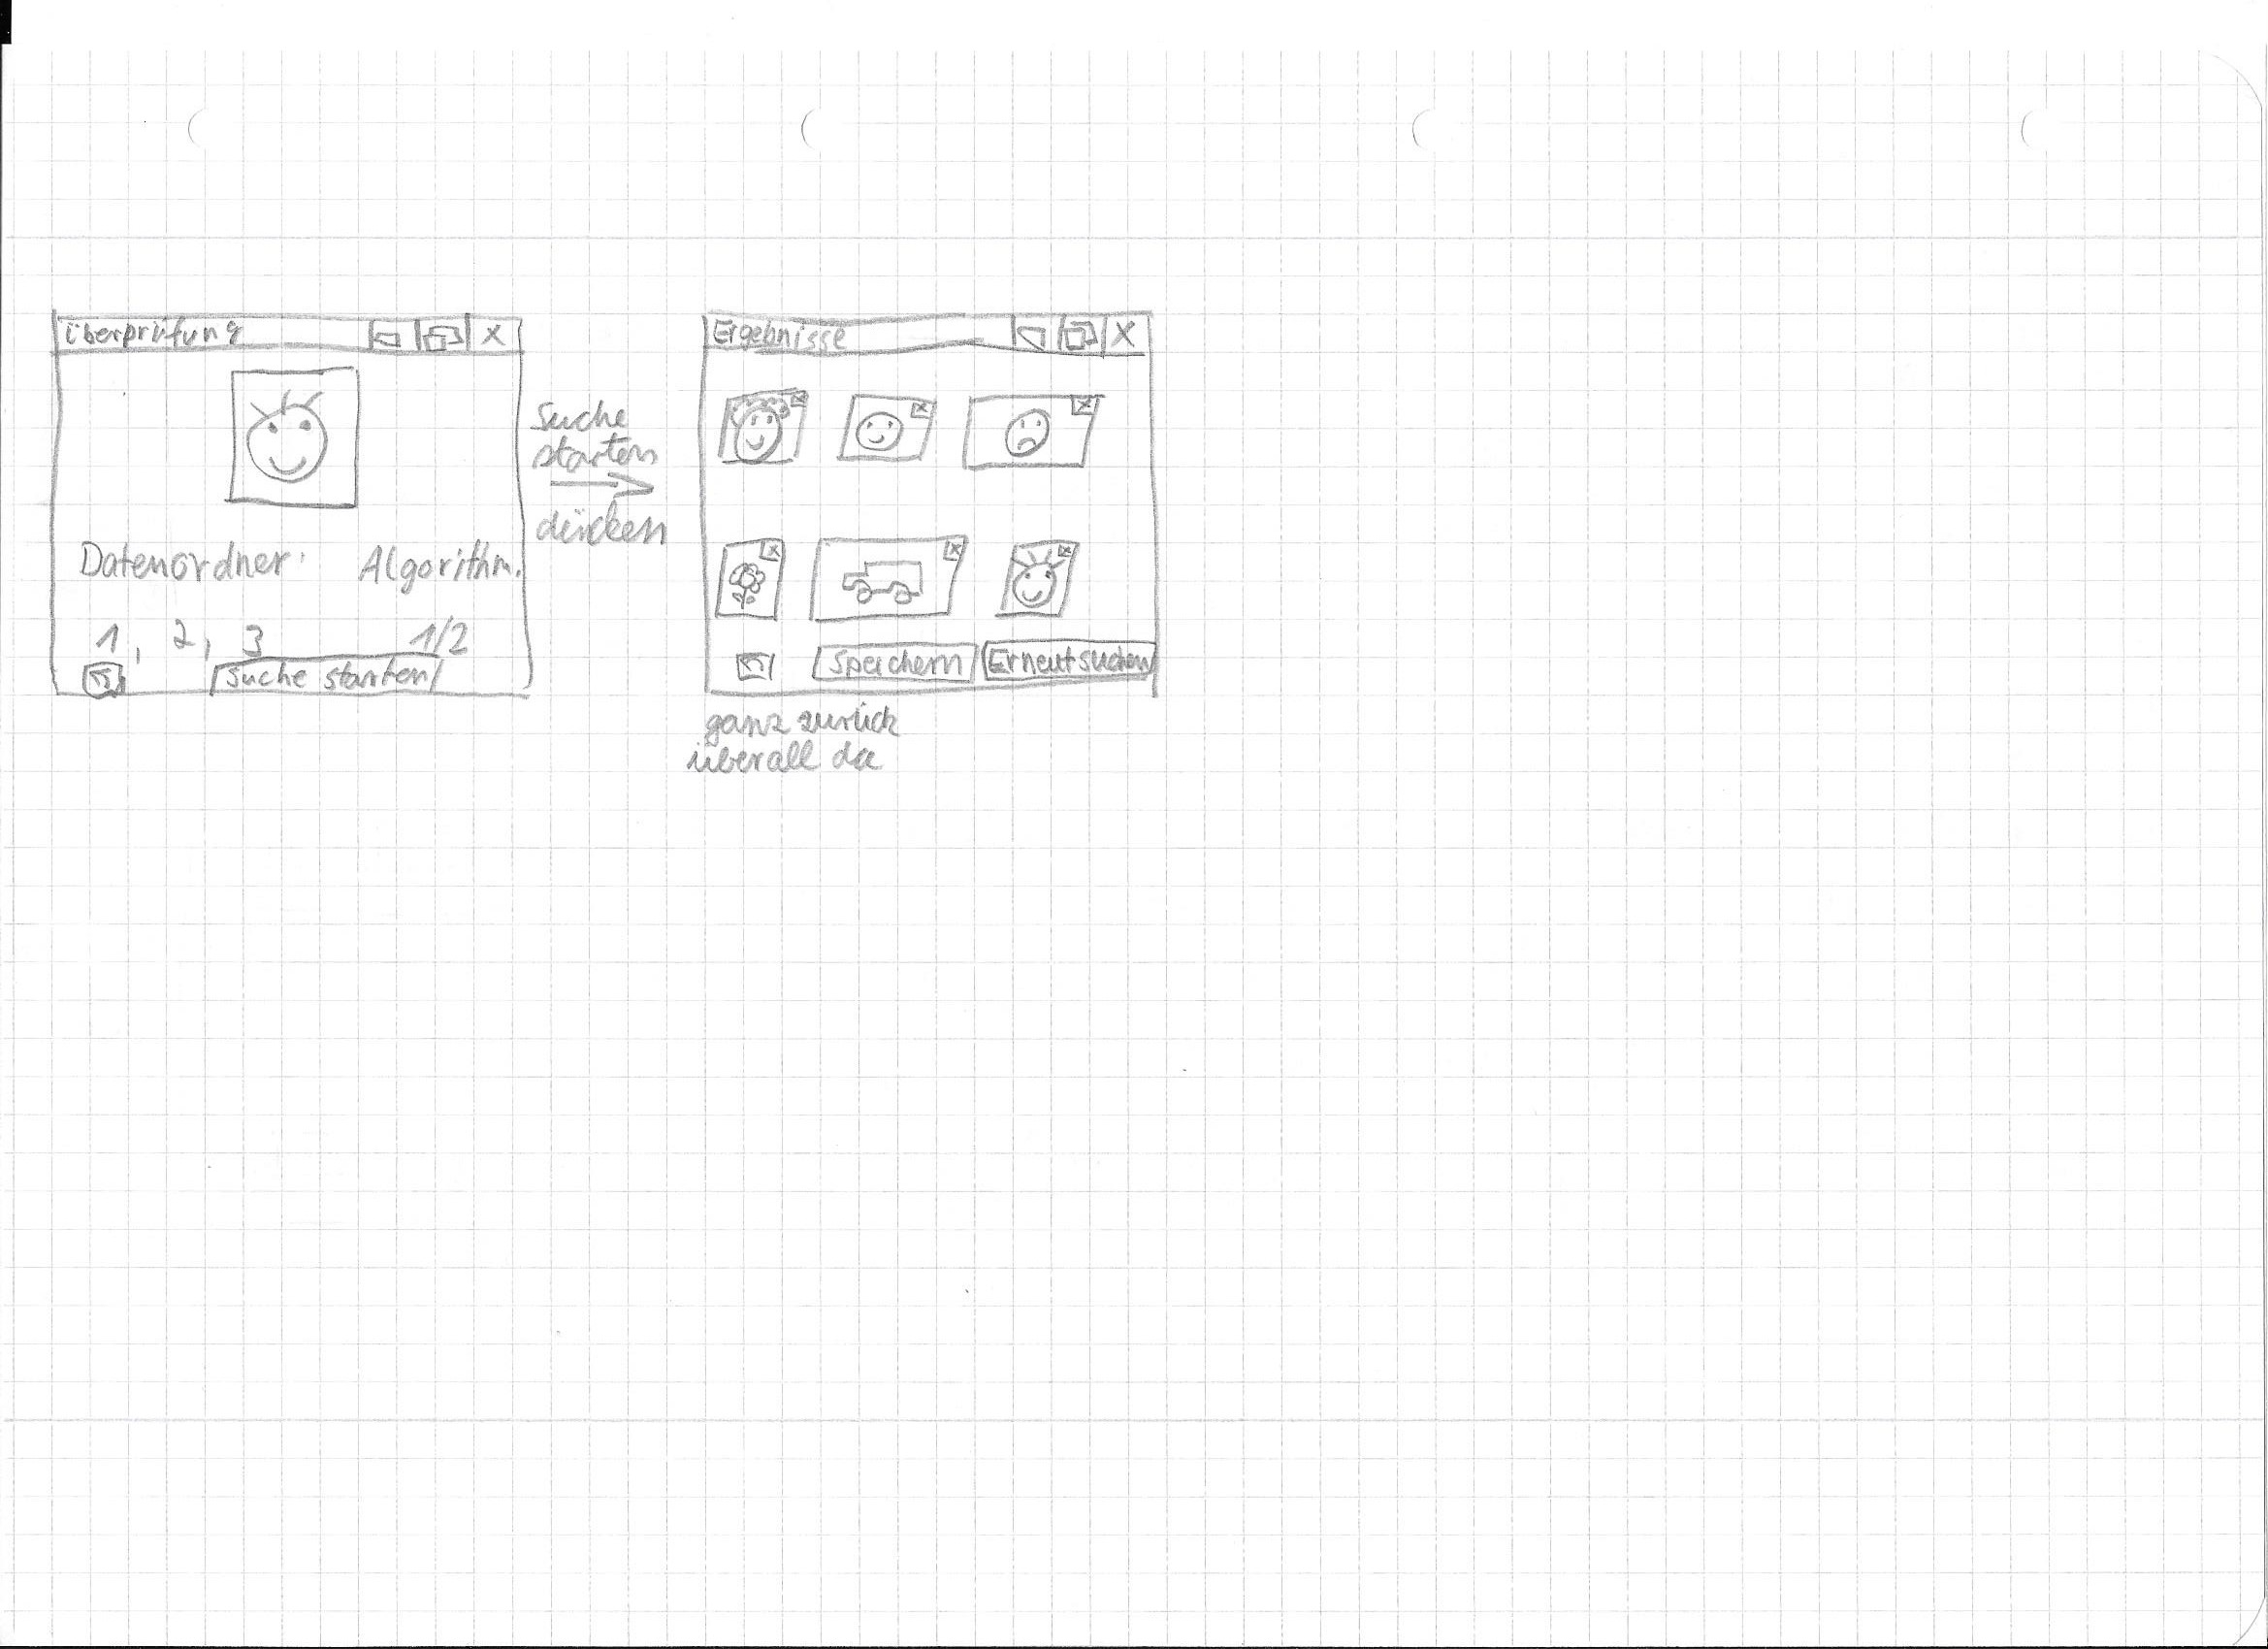 Überprüfung
X
Datenordner:
Algorithm.
1, 2, 3
1/2
Suche starten
Suche
starten
drücken
Ergebnisse
X
x
x
x
x
x
x
Speichern
Erneut suchen
ganz zurück
überall da